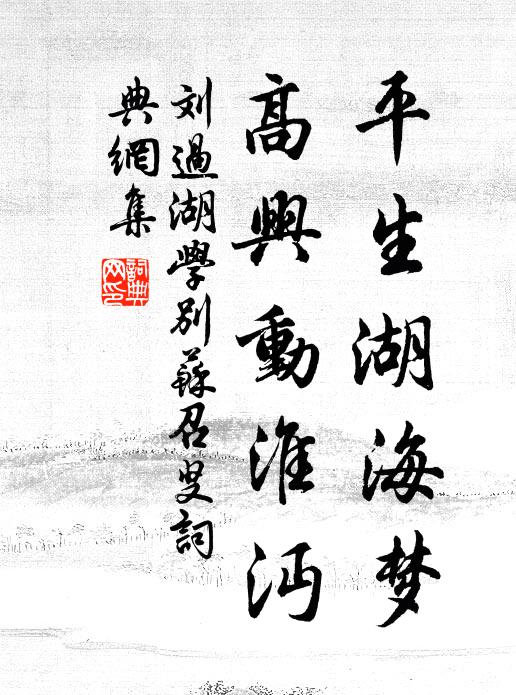 平生湖海梦
高興動淮沔
刘過湖學别蘇召叟詞
典網集
詞典网印